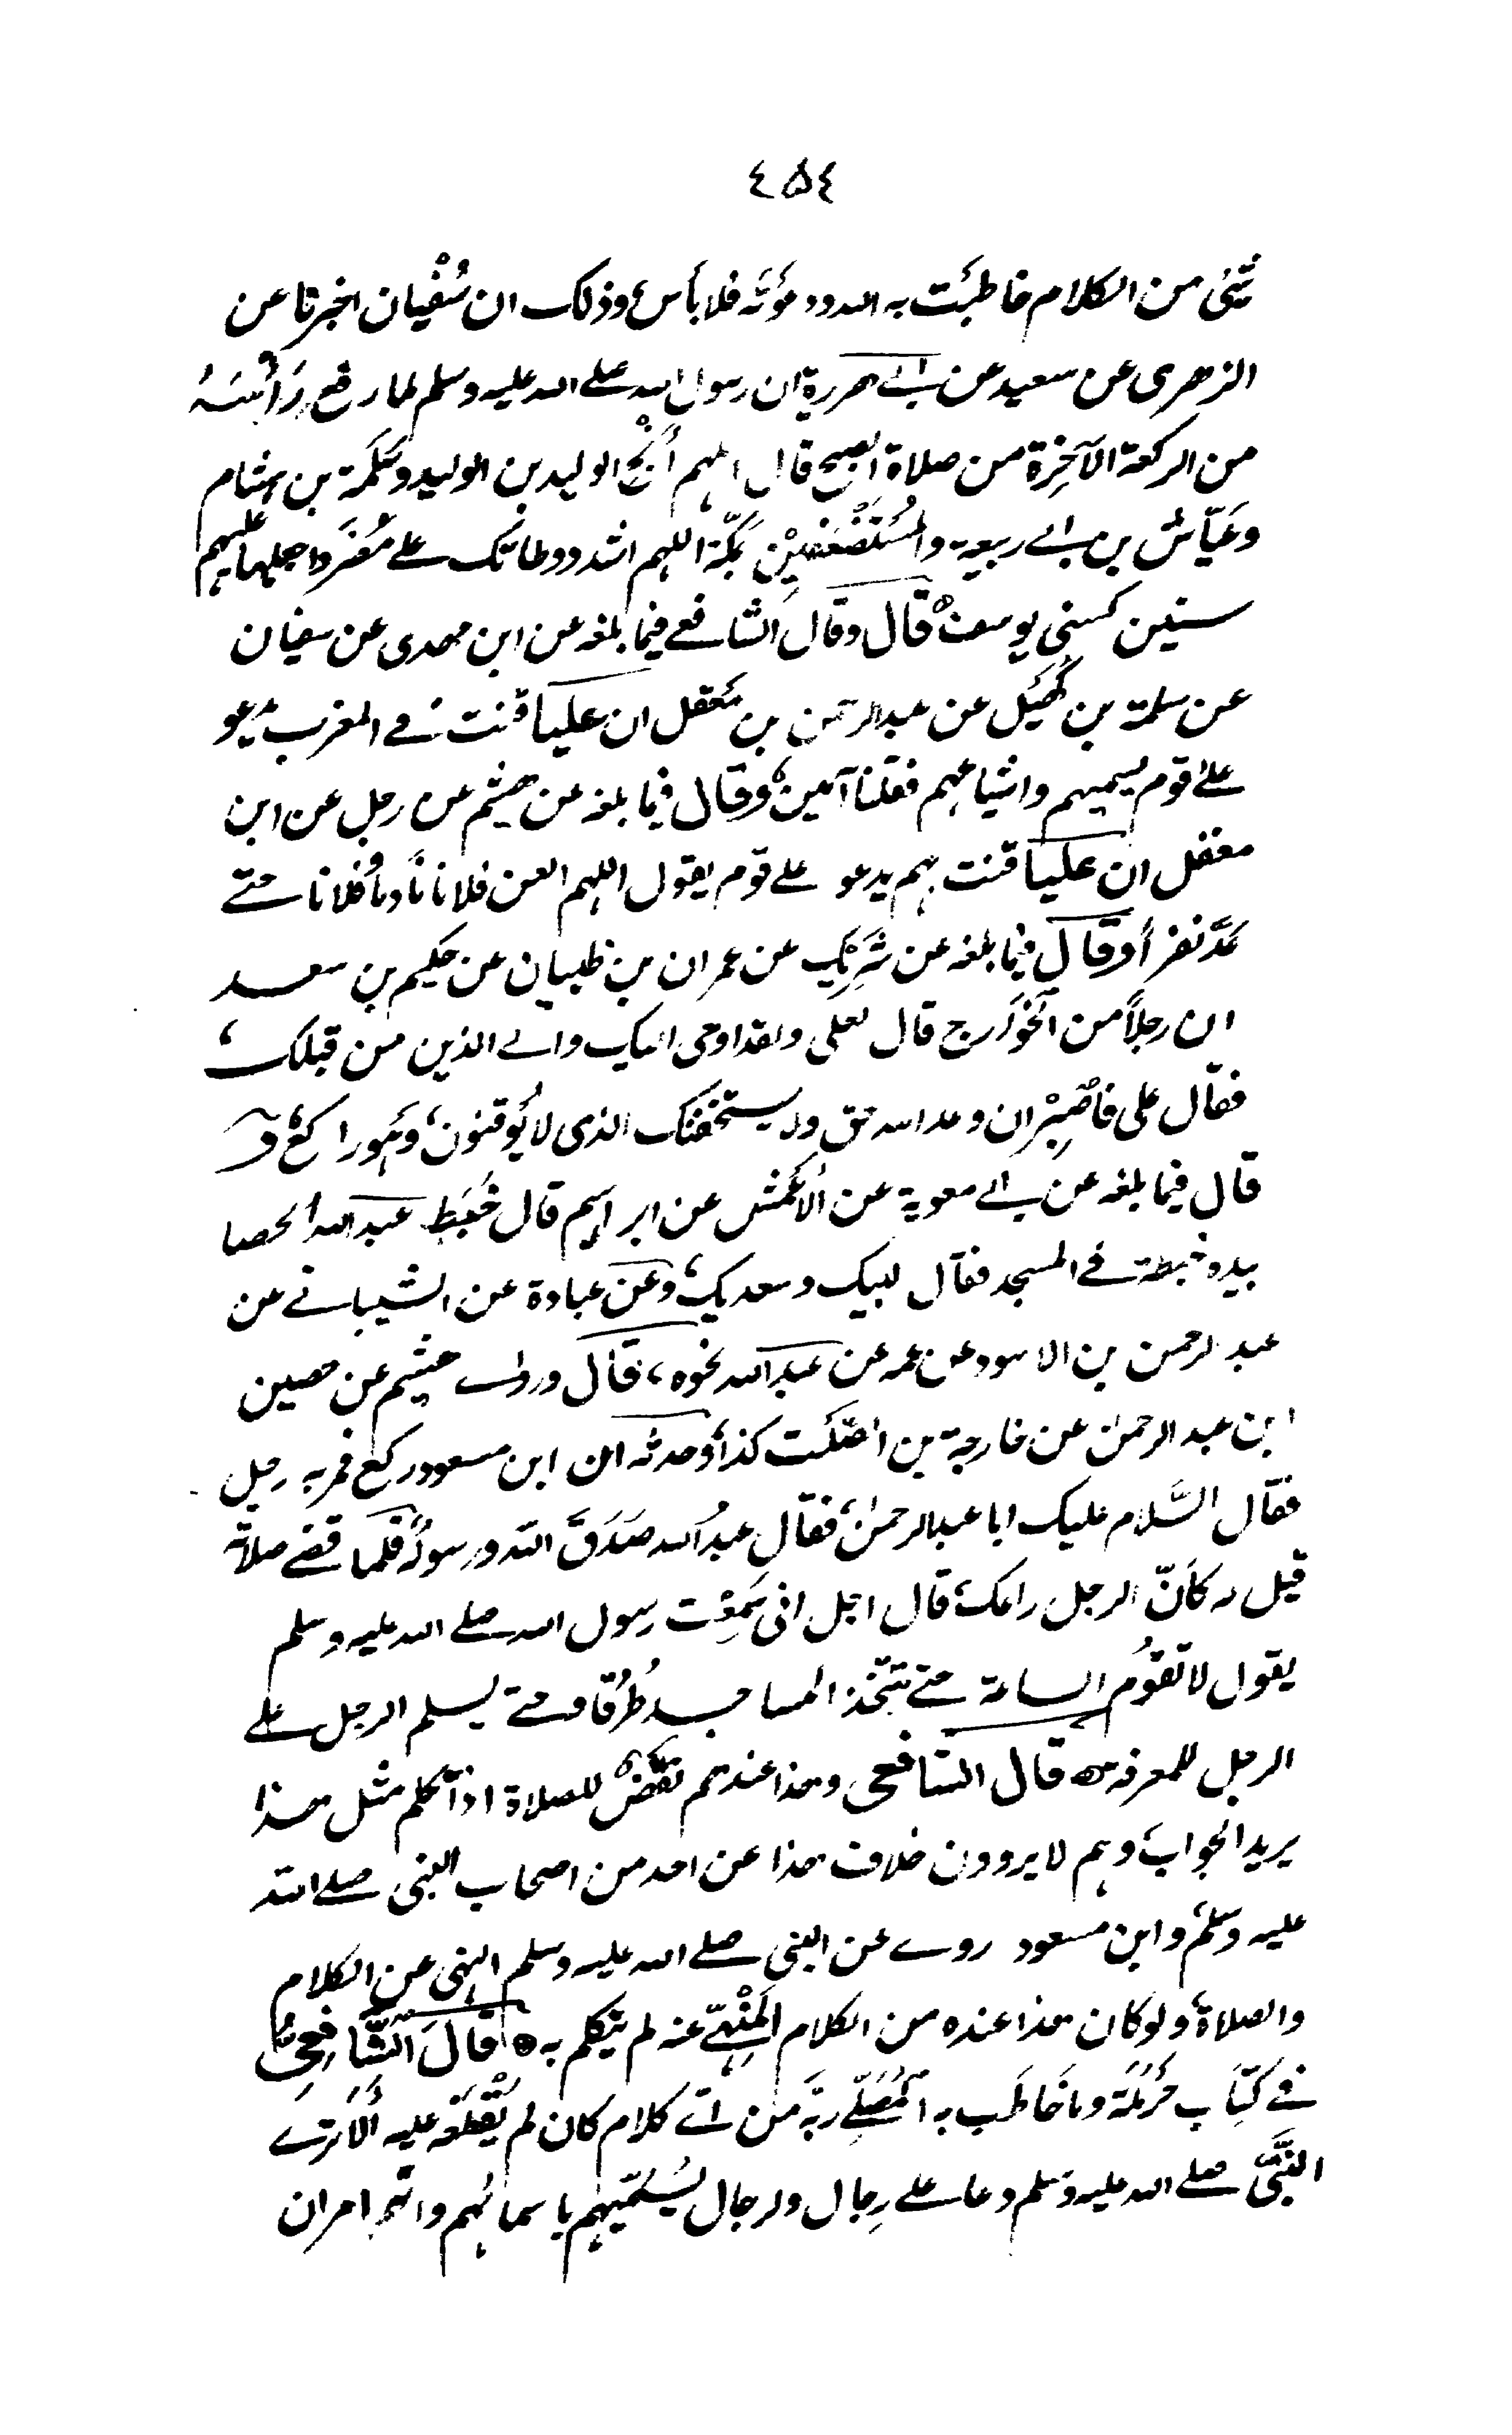 ٤٥٤
شيئ من الكلام خاطبت به الله ودعوته فلا بأس وذلك ان سُفْيان اخبرنا عن
الزهرى عن سعيد عن ابى هريرة ان رسول الله صلى الله عليه وسلم لما رفع رَأْسَهُ
من الركعة الآخِرة من صلاة الصبح قال اللهم أَنْجِ الوليد بن الوليد وسَلَمَة بن هشام
وعَيّاش بن ابى ربيعة والمُسْتَضْعَفِيْن بمكّة اللهم اشدد وطاتك على مُضَر واجعلها عليهم
سنين كسنى يوسف قال وقال الشافعى فيما بلغه عن ابن مهدى عن سفيان
عن سلمة بن كُهَيْل عن عبد الرحمن بن مَعْقل ان عليا قنت فى المغرب يدعو
على قوم يسميهم واشياعهم فقلنا آمين وقال فيما بلغه عن هشيم عن رجل عن ابن
معقل ان عليا قنت بهم يدعو على قوم يقول اللهم العن فلانا بادئا وفلانا حتى
عَدَّ نفرا وقال فيما بلغه عن شَرِيْك عن عمران بن ظبيان عن حكيم بن سعد
ان رجلاً من الخوَارج قال لعلى ولقد اوحى اليك والى الذين من قبلك
فقال على فاصْبِرْ ان وعد الله حق ولا يستخفنك الذى لا يُوقنون وَهُو راكع و
قال فيما بلغه عن ابى معوية عن الأَعْمَش عن ابراهيم قال خَبَط عبد الله الحصا
بيده خبطة فى المسجد فقال لبيك وسعديك وعَن عبادة عن الشيبانى عن
عبد الرحمن بن الاسود عن عمه عن عبد الله نحوه، قال وروى هشيم عن حصين
ابن عبد الرحمن عن خارجة بن الصَّلت كذا وحدثه ان ابن مسعود ركع فمر به رجل
فقال السَّلام عليك ابا عبد الرحمن فقال عبدُ الله صَدَقَ الله ورسولُهُ فلما قضى صلاته
قيل له كَاَنّ الرجل راعك، قال اجل انى سَمِعْت رسول الله صلى الله عليه وسلم
يقول لا تقوُم الساعة حتى تتّخذ المساجد طُرُقا وحتى يسلم الرجل على
الرجل للمعرفة قال الشافعى وهذا عندهم نَقْضٌ للصلاة اذا تكلم بمثل هذا
يريد الجواب وهم لا يروون خلاف هذا عن احد من اصحاب النبى صلى الله
عليه وسلم وابن مسعود روى عن النبى صلى الله عليه وسلم النهى عن الكلام
والصلاة ولو كان هذا عنده من الكلام المَنْهىّ عنه لم يتكلم به قَالَ الشَّافِعِىُّ
فى كتَاب حَرْمَلَة وما خَاطَب به المُصَلّى ربّه من اى كلام كان لم يَقْطَعْه عليه اَلَا تَرى
النَّبِىَّ صلى الله عليه وسلم دعا على رِجال ولرجال يُسَمّيهم باسمائهم وانهم امران